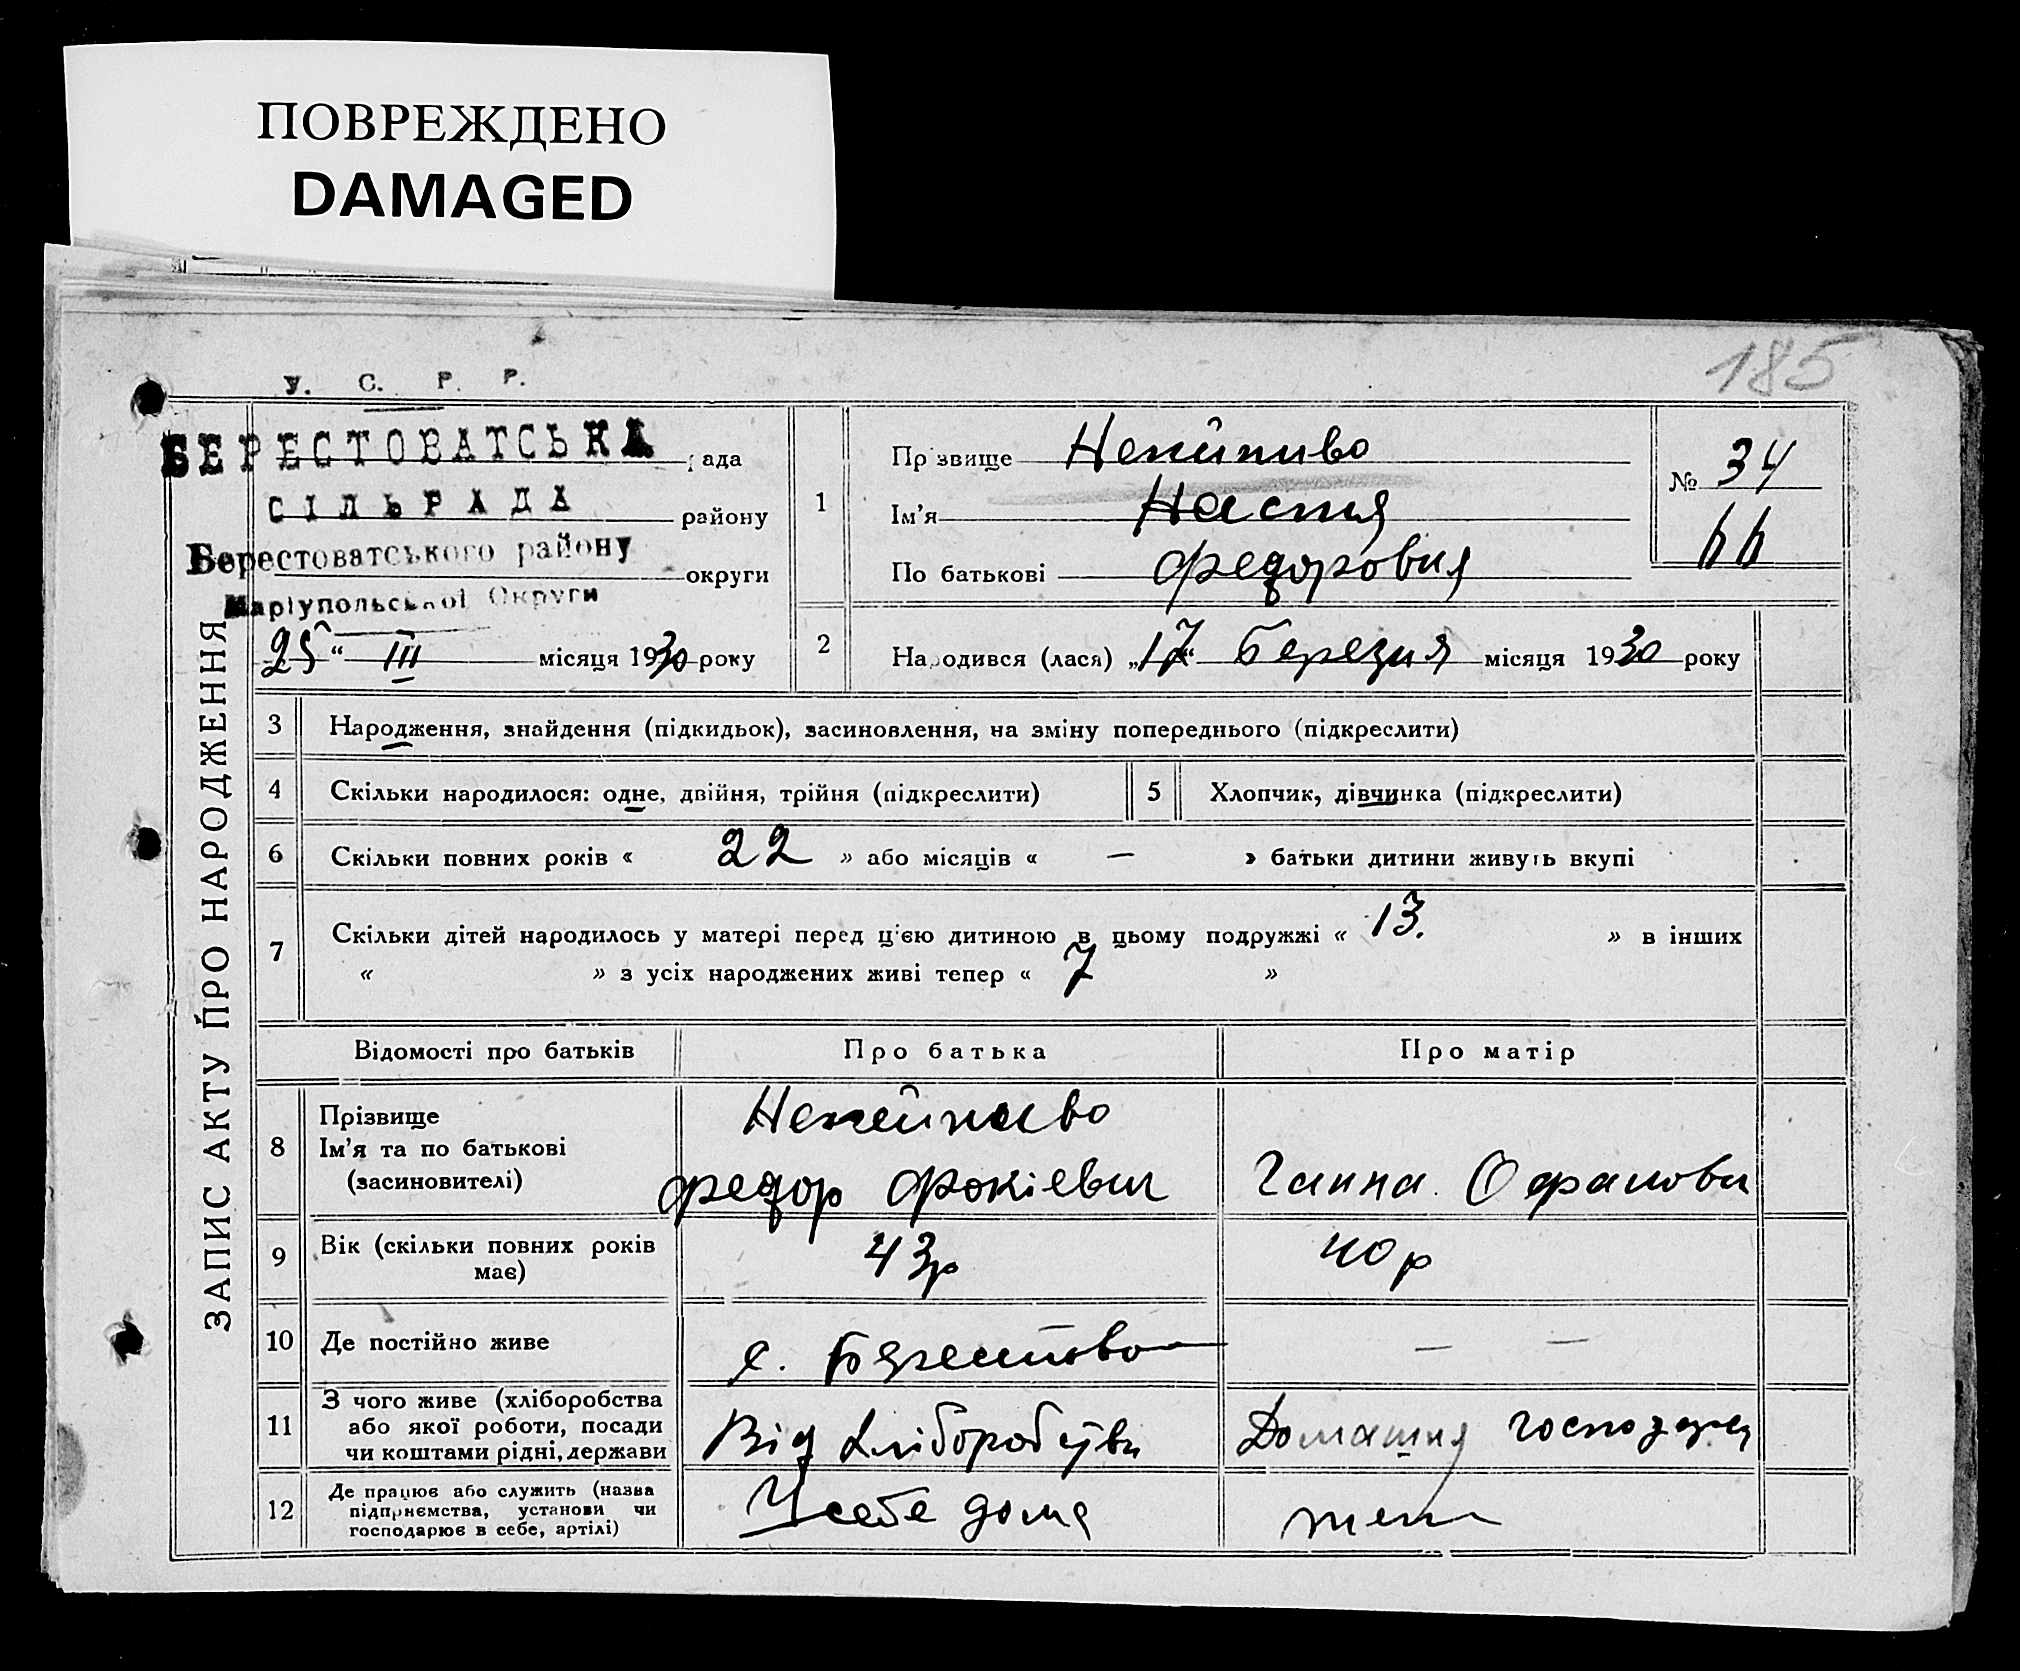 ПОВРЕЖДЕНО
DAMAGED
185
У. С. Р. Р.
БЕРЕСТОВАТСЬКА рада
СІЛЬРАДА району
Берестоватського району округи
Маріупольської Округи
25 " III місяця 1930 року
ЗАПИС АКТУ ПРО НАРОДЖЕННЯ
1 Прізвище Некипиво
Ім'я Настя
По батькові Федоровня
№ 34
2 Народився (лася) „17" Березня місяця 1930 року
3 Народження, знайдення (підкидьок), засиновлення, на зміну попереднього (підкреслити)
4 Скільки народилося: одне, двійня, трійня (підкреслити) 5 Хлопчик, дівчинка (підкреслити)
6 Скільки повних років « 22 » або місяців « — » батьки дитини живуть вкупі
7 Скільки дітей народилось у матері перед ц'єю дитиною в цьому подружжі « 13. » в інших
« » з усіх народжених живі тепер « 7 »
Відомості про батьків Про батька Про матір
8 Прізвище Некейпиво
Ім'я та по батькові
(засиновителі) Федор Фокієвич Ганна
9 Вік (скільки повних років має) 43р 40р
10 Де постійно живе с. — —
11 З чого живе (хліборобства
або якої роботи, посади
чи коштами рідні, держави Від Домашня
12 Де працює або служить (назва
підприємства, установи чи
господарює в себе, артілі) У себе дома теж